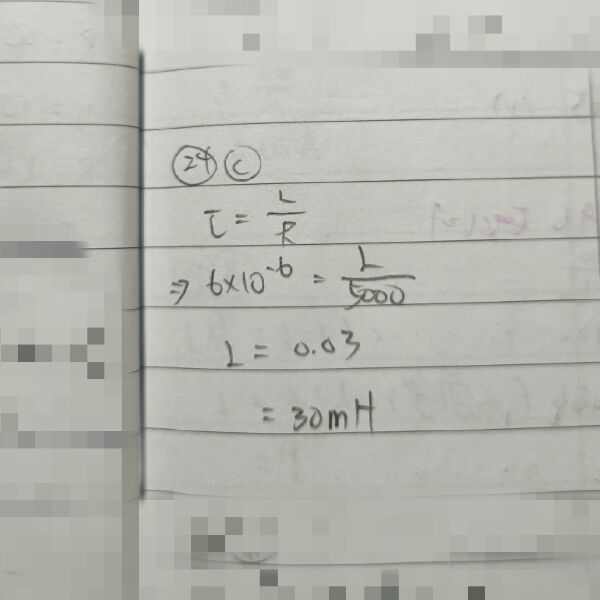 24 C
τ = L/R
⇒ 6×10⁻⁶ = L/5000
L = 0.03
= 30mH